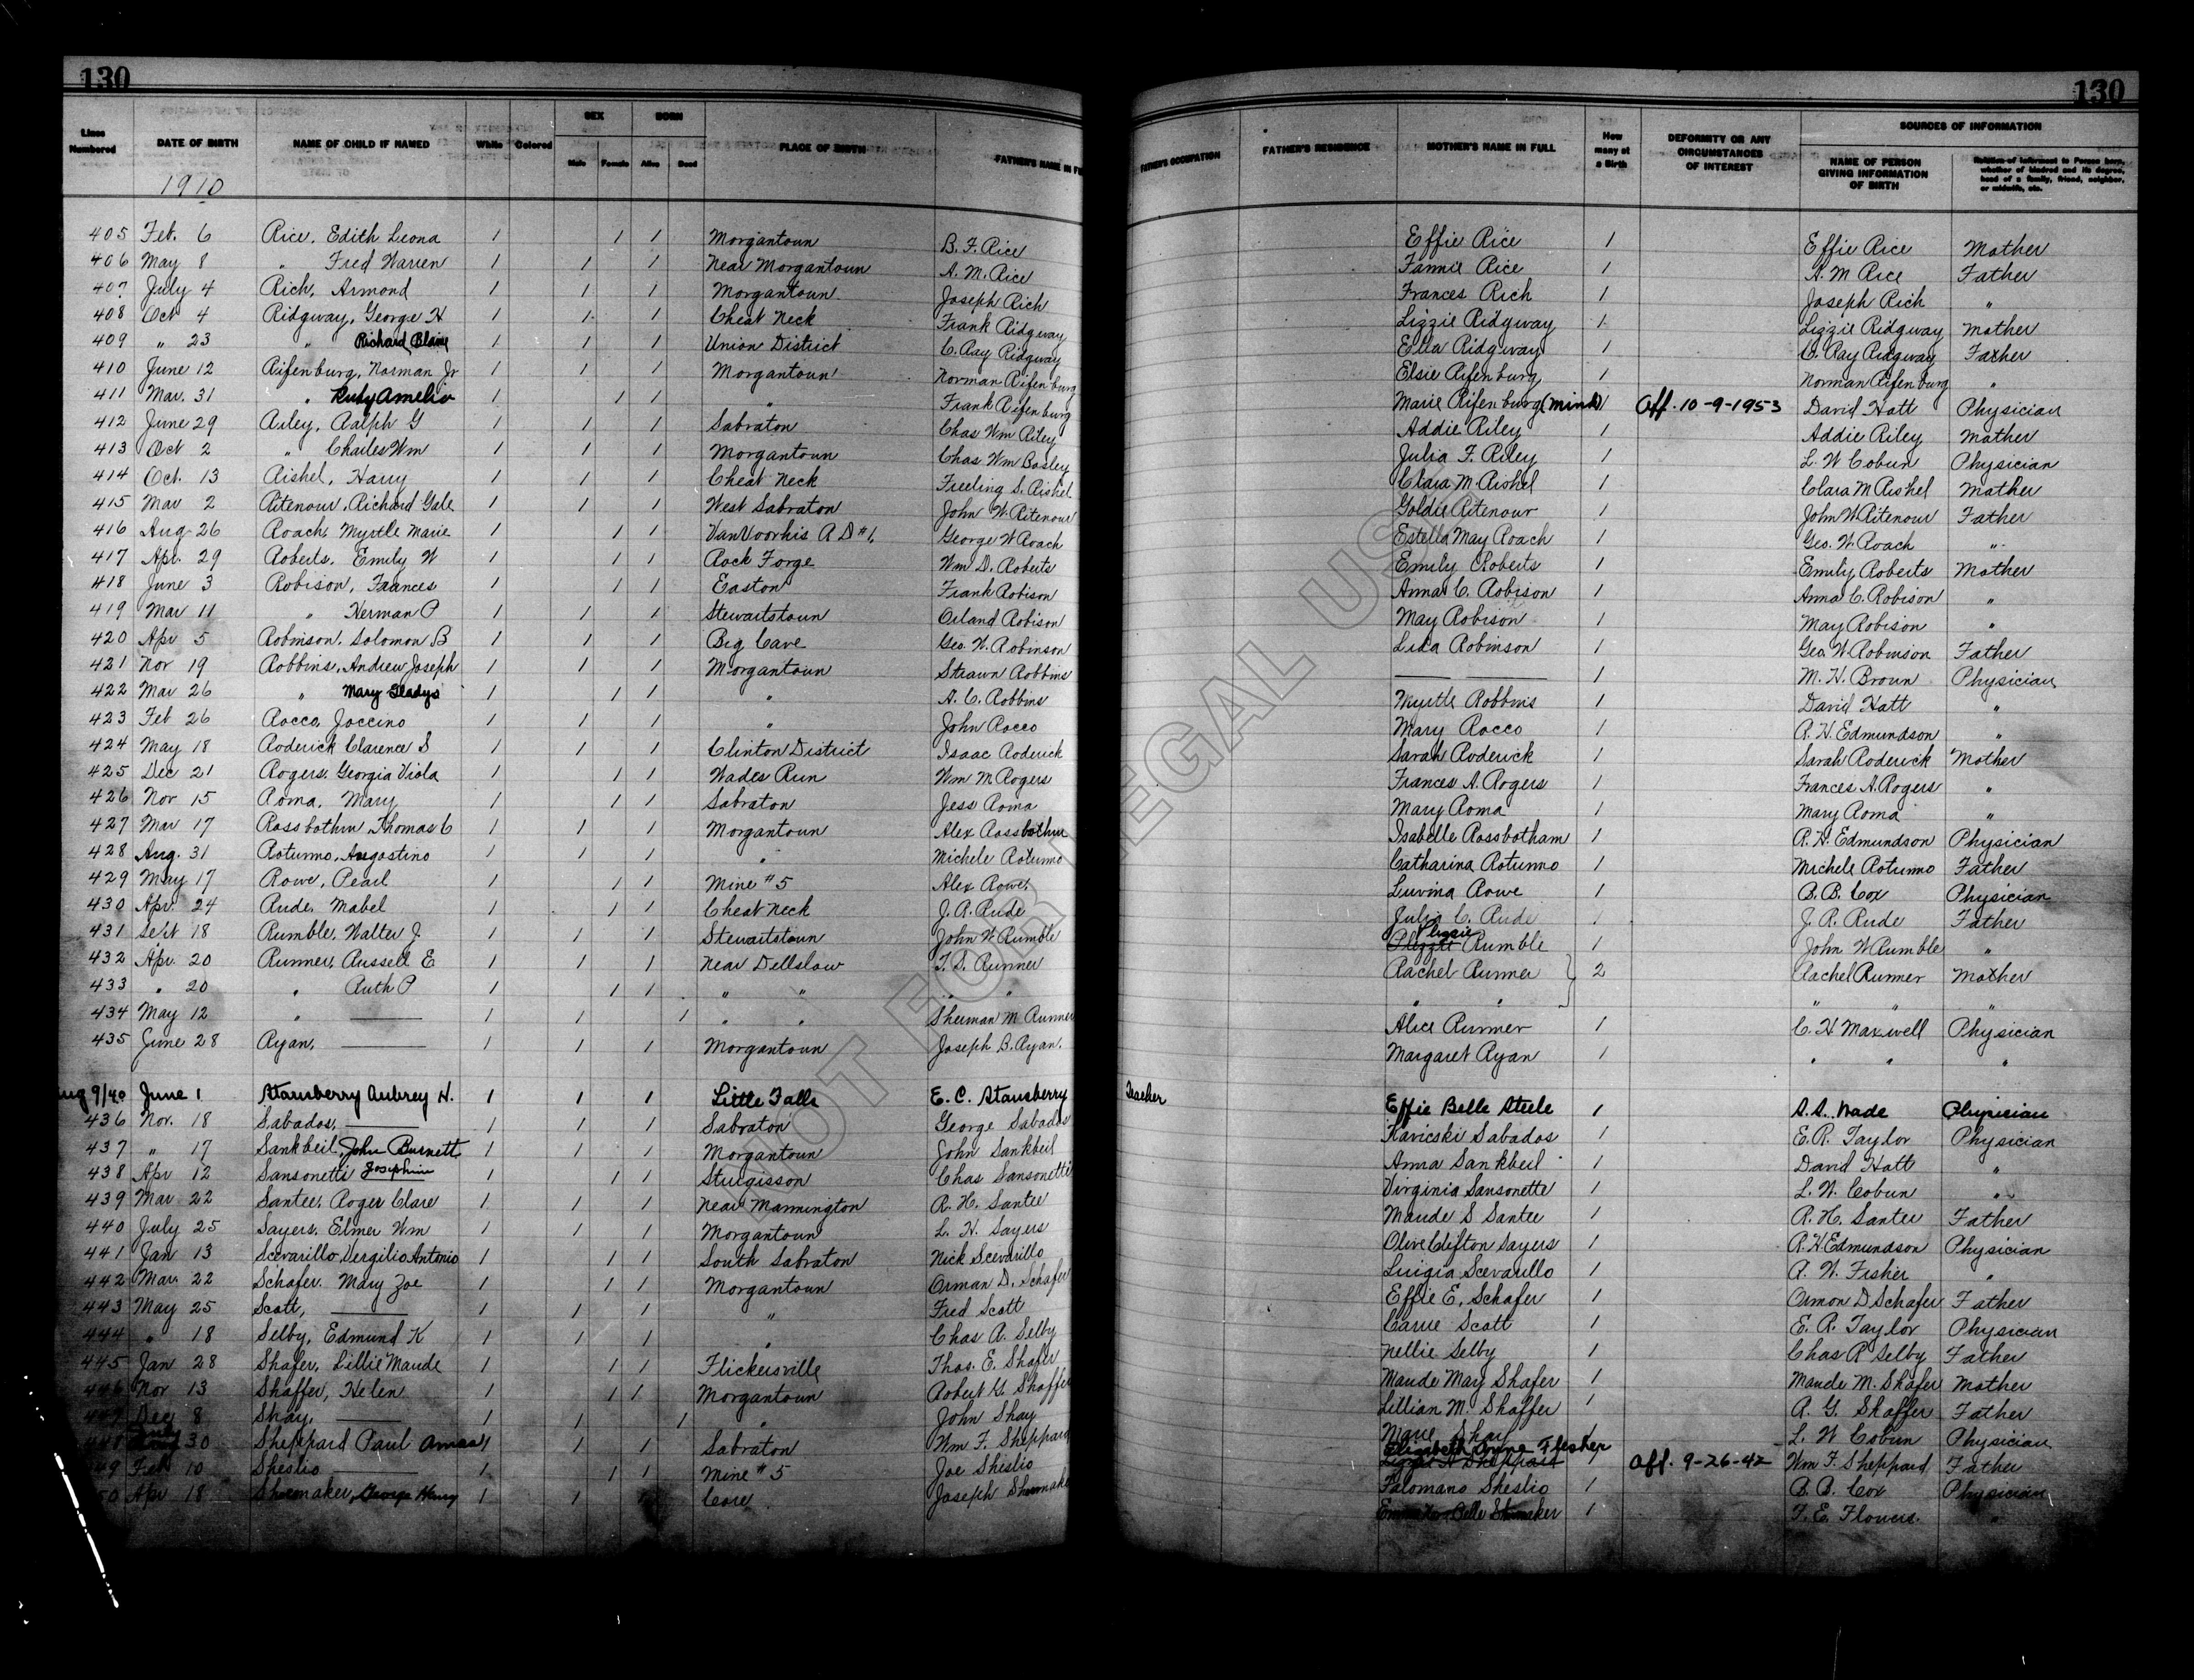 130 130
SEX BORN SOURCES OF INFORMATION
Lines Numbered DATE OF BIRTH NAME OF CHILD IF NAMED White Colored Male Female Alive Dead PLACE OF BIRTH FATHER'S NAME IN FU FATHER'S OCCUPATION FATHER'S RESIDENCE MOTHER'S NAME IN FULL How many at a Birth DEFORMITY OR ANY CIRCUMSTANCES OF INTEREST NAME OF PERSON GIVING INFORMATION OF BIRTH Relation of Informant to Person born, whether of kindred and its degree, head of a family, friend, neighbor, or midwife, etc.
1910
405 Feb. 6 Rice, Edith Leona 1 1 1 Morgantown B. F. Rice Effie Rice 1 Effie Rice Mother
406 May 8 " Fred Warren 1 1 1 Near Morgantown A. M. Rice Fannie Rice 1 A. M Rice Father
407 July 4 Rich, Armond 1 1 1 Morgantown Joseph Rich Frances Rich 1 Joseph Rich "
408 Oct 4 Ridgway, George H 1 1 1 Cheat Neck Frank Ridgway Lizzie Ridgway 1 Lizzie Ridgway Mother
409 " 23 " Richard Blaine 1 1 1 Union District C. Ray Ridgway Etta Ridgway 1 C. Ray Ridgway Father
410 June 12 Rifenburg, Norman Jr 1 1 1 Morgantown Norman Rifenburg Elsie Rifenburg 1 Norman Rifenburg "
411 Mar. 31 " Ruby Amelia 1 1 1 " Frank Rifenburg Marie Rifenburg (Mink) 1 Aff. 10-9-1953 David Hott Physician
412 June 29 Riley, Ralph G 1 1 1 Sabraton Chas Wm Riley Addie Riley 1 Addie Riley Mother
413 Oct 2 " Charles Wm 1 1 1 Morgantown Chas Wm Bosley Julia F. Riley 1 L. W Cobun Physician
414 Oct. 13 Rishel, Harry 1 1 1 Cheat Neck Freeling S. Rishel Clara M. Rishel 1 Clara M Rishel Mother
415 Mar 2 Ritenour, Richard Gale 1 1 1 West Sabraton John W. Ritenour Goldie Ritenour 1 John W Ritenour Father
416 Aug 26 Roach, Myrtle Marie 1 1 1 Van Voorhis R D #1. George W Roach Estella May Roach 1 Geo. W. Roach "
417 Apr. 29 Roberts, Emily W 1 1 1 Rock Forge Wm D. Roberts Emily Roberts 1 Emily Roberts Mother
418 June 3 Robison, Frances 1 1 1 Easton Frank Robison Anna C. Robison 1 Anna C. Robison "
419 Mar 11 " Herman P 1 1 1 Stewartstown Orland Robison May Robison 1 May Robison "
420 Apr 5 Robinson, Solomon B 1 1 1 Big Cave Geo. W. Robinson Lida Robinson 1 Geo. W Robinson Father
421 Nov 19 Robbins, Andrew Joseph 1 1 1 Morgantown Strawn Robbins 1 M. H. Brown Physician
422 Mar 26 " Mary Gladys 1 1 1 " A. C. Robbins Myrtle Robbins 1 David Hott "
423 Feb 26 Rocco, Joccino 1 1 1 " John Rocco Mary Rocco 1 R. H. Edmundson "
424 May 18 Roderick Clarence S 1 1 1 Clinton District Isaac Roderick Sarah Roderick 1 Sarah Roderick Mother
425 Dec 21 Rogers, Georgia Viola 1 1 1 Wades Run Wm M Rogers Frances A. Rogers 1 Frances A. Rogers "
426 Nov 15 Roma, Mary 1 1 1 Sabraton Jess Roma Mary Roma 1 Mary Roma "
427 Mar 17 Rossbothm Thomas C 1 1 1 Morgantown Alex Rossbothm Isabelle Rossbotham 1 R. H. Edmundson Physician
428 Aug. 31 Rotunno, Augostino 1 1 1 " Michele Rotunno Catharina Rotunno 1 Michele Rotunno Father
429 May 17 Rowe, Pearl 1 1 1 Mine #5 Alex Rowe. Luvina Rowe 1 B. B. Cox Physician
430 Apr. 24 Rude, Mabel 1 1 1 Cheat Neck J. R. Rude Julia C. Rude 1 J. R. Rude Father
431 Sept 18 Rumble, Walter J. 1 1 1 Stewartstown John W Rumble Rumble 1 John W Rumble "
432 Apr. 20 Runner, Russell E 1 1 1 Near Dellslow T. S. Runner Rachel Runner } 2 Rachel Runner Mother
433 " 20 " Ruth P 1 1 1 " " " " " " " " "
434 May 12 " 1 1 1 " " Sherman M Runner Alice Runner 1 C. H Maxwell Physician
435 June 28 Ryan, 1 1 1 Morgantown Joseph B. Ryan. Margaret Ryan 1 " " "
Aug 9/40 June 1 Stansberry Aubrey H. 1 1 1 Little Falls E. C. Stansberry Teacher Effie Belle Steele 1 S. S. Wade Physician
436 Nov. 18 Sabados, 1 1 1 Sabraton George Sabados Kavicski Sabados 1 E. R. Taylor Physician
437 " 17 Sankbeil, John Burnett 1 1 1 Morgantown John Sankbeil Anna Sankbeil 1 David Hott "
438 Apr 12 Sansonetti Josephine 1 1 1 Sturgisson Chas Sansonetti Virginia Sansonette 1 L. W. Cobun "
439 Mar 22 Santee, Roger Clare 1 1 1 Near Mannington R. H. Santee Maude S Santee 1 R. H. Santee Father
440 July 25 Sayers, Elmer Wm 1 1 1 Morgantown L. H. Sayers Olive Clifton Sayers 1 R. H Edmundson Physician
441 Jan 13 Scevarillo, Vergilio Antonio 1 1 1 South Sabraton Nick Scevarillo Luigia Scevarillo 1 A. W. Fisher "
442 Mar. 22 Schafer, Mary Zoe 1 1 1 Morgantown Orman D. Schafer Effie E, Schafer 1 Ormon D Schafer Father
443 May 25 Scott, 1 1 1 " Fred Scott Carrie Scott 1 E. R. Taylor Physician
444 " 18 Selby, Edmund K 1 1 1 " Chas R. Selby Nellie Selby 1 Chas R Selby Father
445 Jan 28 Shafer, Lillie Maude 1 1 1 Flickersville Thos. E. Shafer Maude May Shafer 1 Maude M. Shafer Mother
446 Nov 13 Shaffer, Helen 1 1 1 Morgantown Robert G. Shaffer Lillian M. Shaffer 1 R. G. Shaffer Father
447 Dec 8 Shay, 1 1 1 " John Shay Marie Shay 1 L. W Cobun Physician
448 30 Sheppard Paul Amos 1 1 1 Sabraton Wm F. Sheppard Elizabeth Anne Flesher Lizzie A Sheppard 1 Aff. 9-26-42 Wm F. Sheppard Father
449 Feb 10 Sheslio 1 1 1 Mine #5 Joe Sheslio Palomano Sheslio 1 B. B. Cox Physician
50 Apr 18 Shumaker, George Henry 1 1 1 Core Joseph Shumake Belle Shumaker 1 F. E. Flowers. "
NOT FOR LEGAL USE